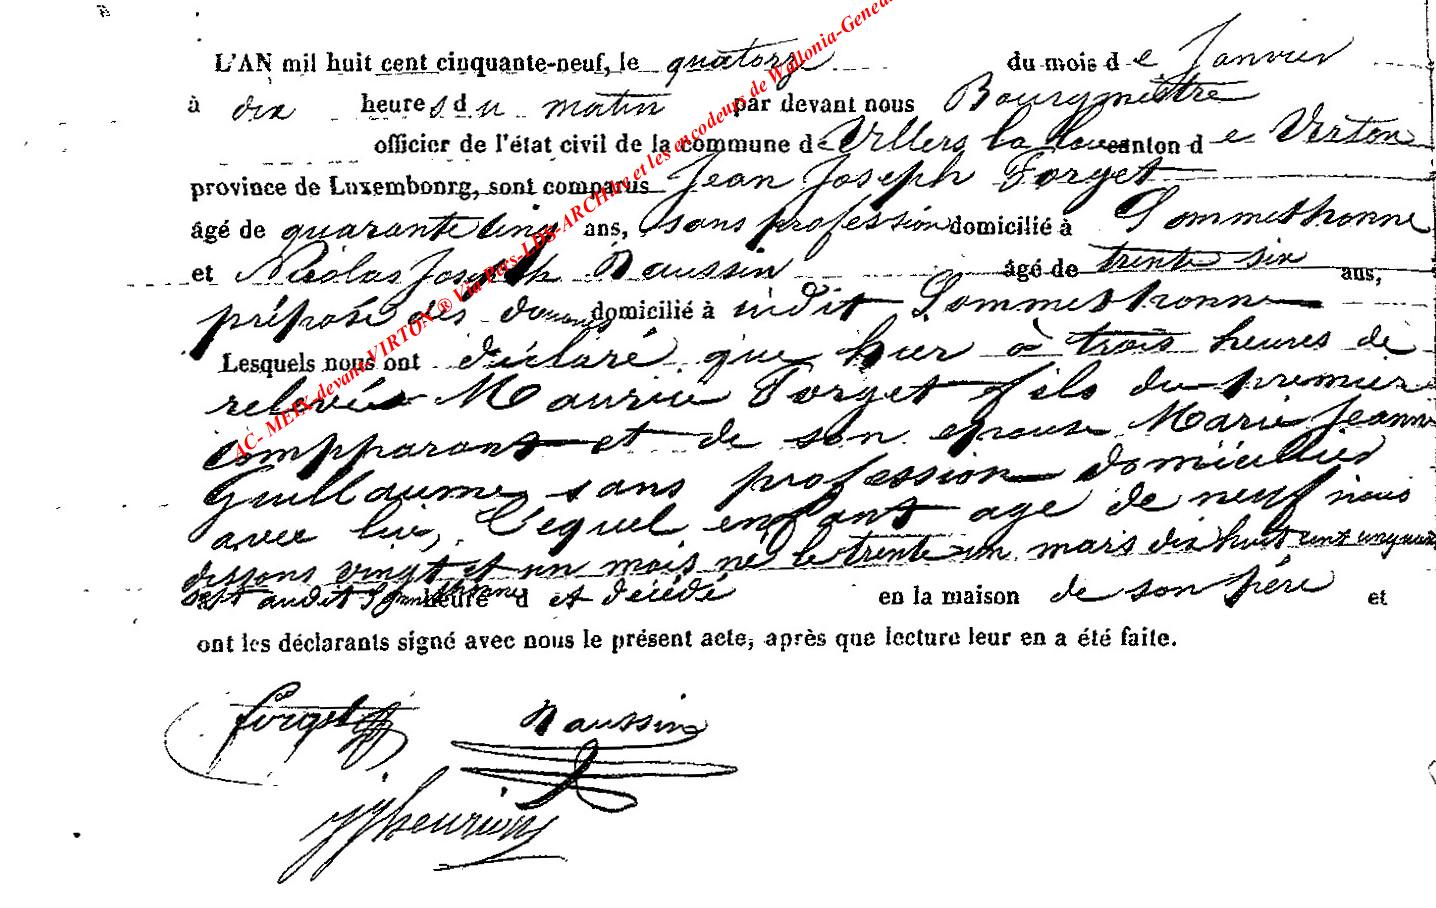 L'AN mil huit cent cinquante-neuf, le quatorze du mois de Janvier
à dix heures du matin par devant nous Bourgmestre
officier de l'état civil de la commune de Villers la Loue canton de Virton
province de Luxembourg, sont comparus Jean Joseph Forget
âgé de quarante cinq ans, sans profession domicilié à Sommethonne
et Nicolas Joseph Naussin âgé de trente six ans,
préposé des douanes domicilié à sudit Sommethonne
Lesquels nous ont déclaré que hier à trois heures de
relevée Maurice Forget fils du premier
compparant et de son epouse Marie Jeanne
Guillaume sans profession domicilies
avec lui, Lequel enfant age de neuf nous
dissons vingt et un mois né le trente un mars dix huit cent
audit heure d et décédé en la maison de son père et
ont les déclarants signé avec nous le présent acte, après que lecture leur en a été faite.
forget Naussin
AC- MEIX-devant-VIRTON ® Via Pers-LDS-ARCH.be et les encodeurs de Wallonia-Genea